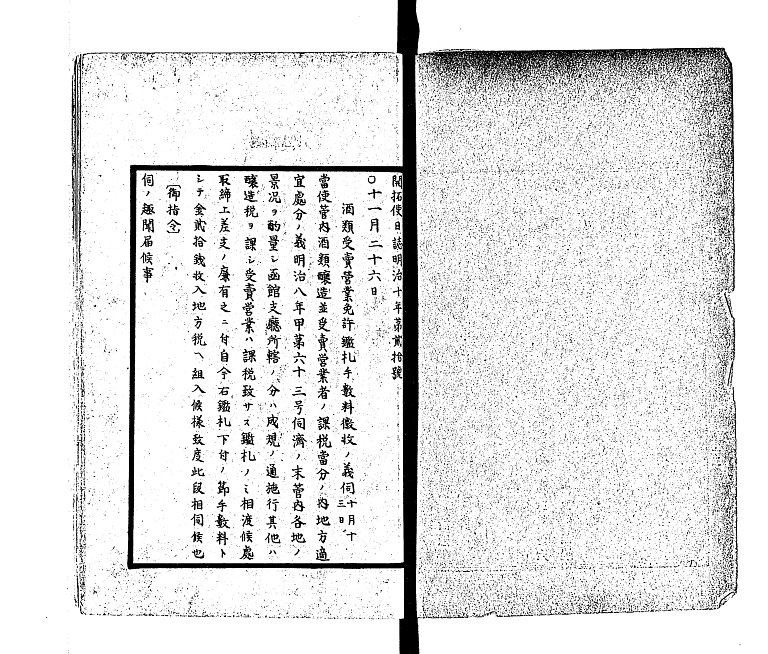 開拓使日誌明治十年第貳拾號
○十一月二十六日
酒類受賣營業免許鑑札手數料徵收ノ義伺十月十三日
當使管内酒類釀造並受賣營業者ノ課税當分ノ内地方適
宜處分ノ義明治八年甲第六十三号伺濟ノ末管内各地ノ
景況ヲ酌量シ函館支廳所轄ノ分ハ成規ノ通施行其他ハ
釀造税ヲ課シ受賣營業ハ課税致サス鑑札ノミ相渡候處
取締上差支ノ廉有之ニ付自今右鑑札下付ノ節手數料ト
シテ金貳拾錢收入地方税ヘ組入候樣致度此段相伺候也
〔御指令〕
伺ノ趣聞届候事